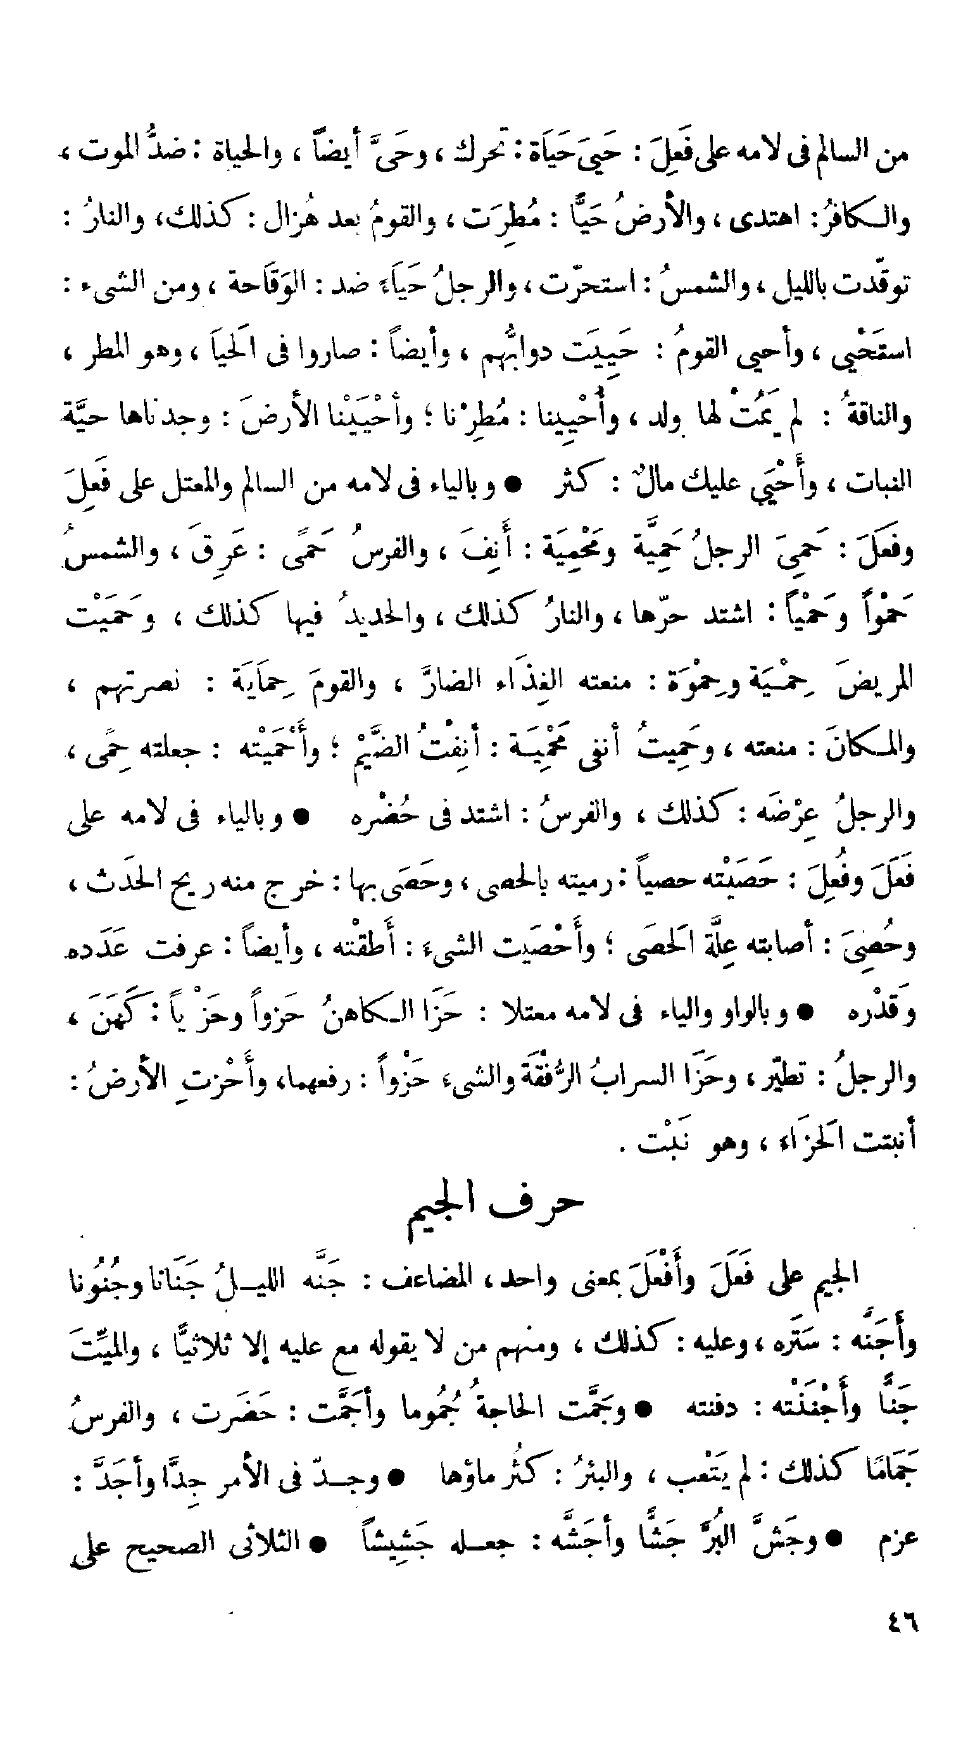 من السالم فى لامه على فَعِلَ : حَيِىَ حَيَاة : تحرك ، وحَىَّ أيضاً ، والحياة : ضدُّ الموت ،
والـكافرُ : اهتدى ، والأرضُ حَيًّا : مُطِرَت ، والقومُ بعد هُزال : كذلك، والنارُ :
توقّدت بالليل ، والشمسُ : استحرّت ، والرجلُ حَيَاءً ضد : الوَقَاحة ، ومن الشىء :
استَحْيى ، وأحيى القومُ : حَيِيَت دوابُّهم ، وأيضاً : صاروا فى الَحيَا ، وهو المطر ،
والناقةُ : لم يَمُتْ لها ولد ، وأُحْيِينا : مُطِرْنا ؛ وأحْيَيْنا الأرضَ : وجدناها حيَّة
النبات ، وأَحْيَي عليك مالٌ : كثر ● وبالياء فى لامه من السالم والمعتل على فَعِلَ
وفَعَلَ : حَمِىَ الرجلُ حَمِيَّة ومَحْمِيَة : أَنِفَ ، والفرسُ حَمًى : عَرِقَ ، والشمسُ
حَمْواً وحَمْياً : اشتد حرّها ، والنارُ كذلك ، والحديدُ فيها كذلك ، وحَمَيْت
المريضَ حِمْـيَة وحِمْوَة : منعته الغِذَاء الضارَّ ، والقومَ حِمَايَة : نصرتهم ،
والمـكانَ : منعته ، وحَمِيتُ أنفى مَحْمِيَـة : أنِفْتُ الضَّيْمَ ؛ وأَحْمَيْته : جعلته حِمًى ،
والرجلُ عِرْضَه : كذلك ، والفرسُ : اشتد فى حُضْره ● وبالياء فى لامه على
فَعَلَ وفُعِلَ : حَصَيْته حصياً : رميته بالحصى ، وحَصَى بها : خرج منه ريح الحَدَث ،
وحُصِىَ : أصابته عِلَّة الَحصَى ؛ وأَحْصَيت الشىءَ : أَطقْته ، وأيضاً : عرفت عَدَده
وَقدْره ● وبالواو والياء فى لامه معتلا : حَزَا الـكاهنُ حَزواً وحَزْ ياً : كَهَنَ ،
والرجلُ : تطيّر ، وحَزَا السرابُ الرُّفْقَة والشىء حَزْواً : رفعهما، وأَحْزتِ الأرضُ :
أنبتت الَحزَاء ، وهو نَبْت .
حرف الجيم
الجيم على فَعَلَ وأَفْعَلَ بمعنى واحد ، المضاعف : جَنَّه الليـلُ جَنَانا وجُنُونا
وأَجَنَّه : سَتَره ، وعليه : كذلك ، ومنهم من لا يقوله مع عليه إلا ثلاثيًّا ، والميِّتَ
جَنًّا وأَجْنَنْته : دفنته ● وجَمَّت الحاجةُ جُمُوما وأجَمَّت : حَضَرت ، والفرسُ
جَمَامًا كذلك : لم يَتْعب ، والبئرُ : كثُر ماؤها ● وجـدّ فى الأمر جِدًّا وأجَدَّ :
عزم ● وجَشَّ البُرَّ جَشًّا وأجَشَّه : جعـله جَشِيشاً ● الثلاثى الصحيح على
٤٦